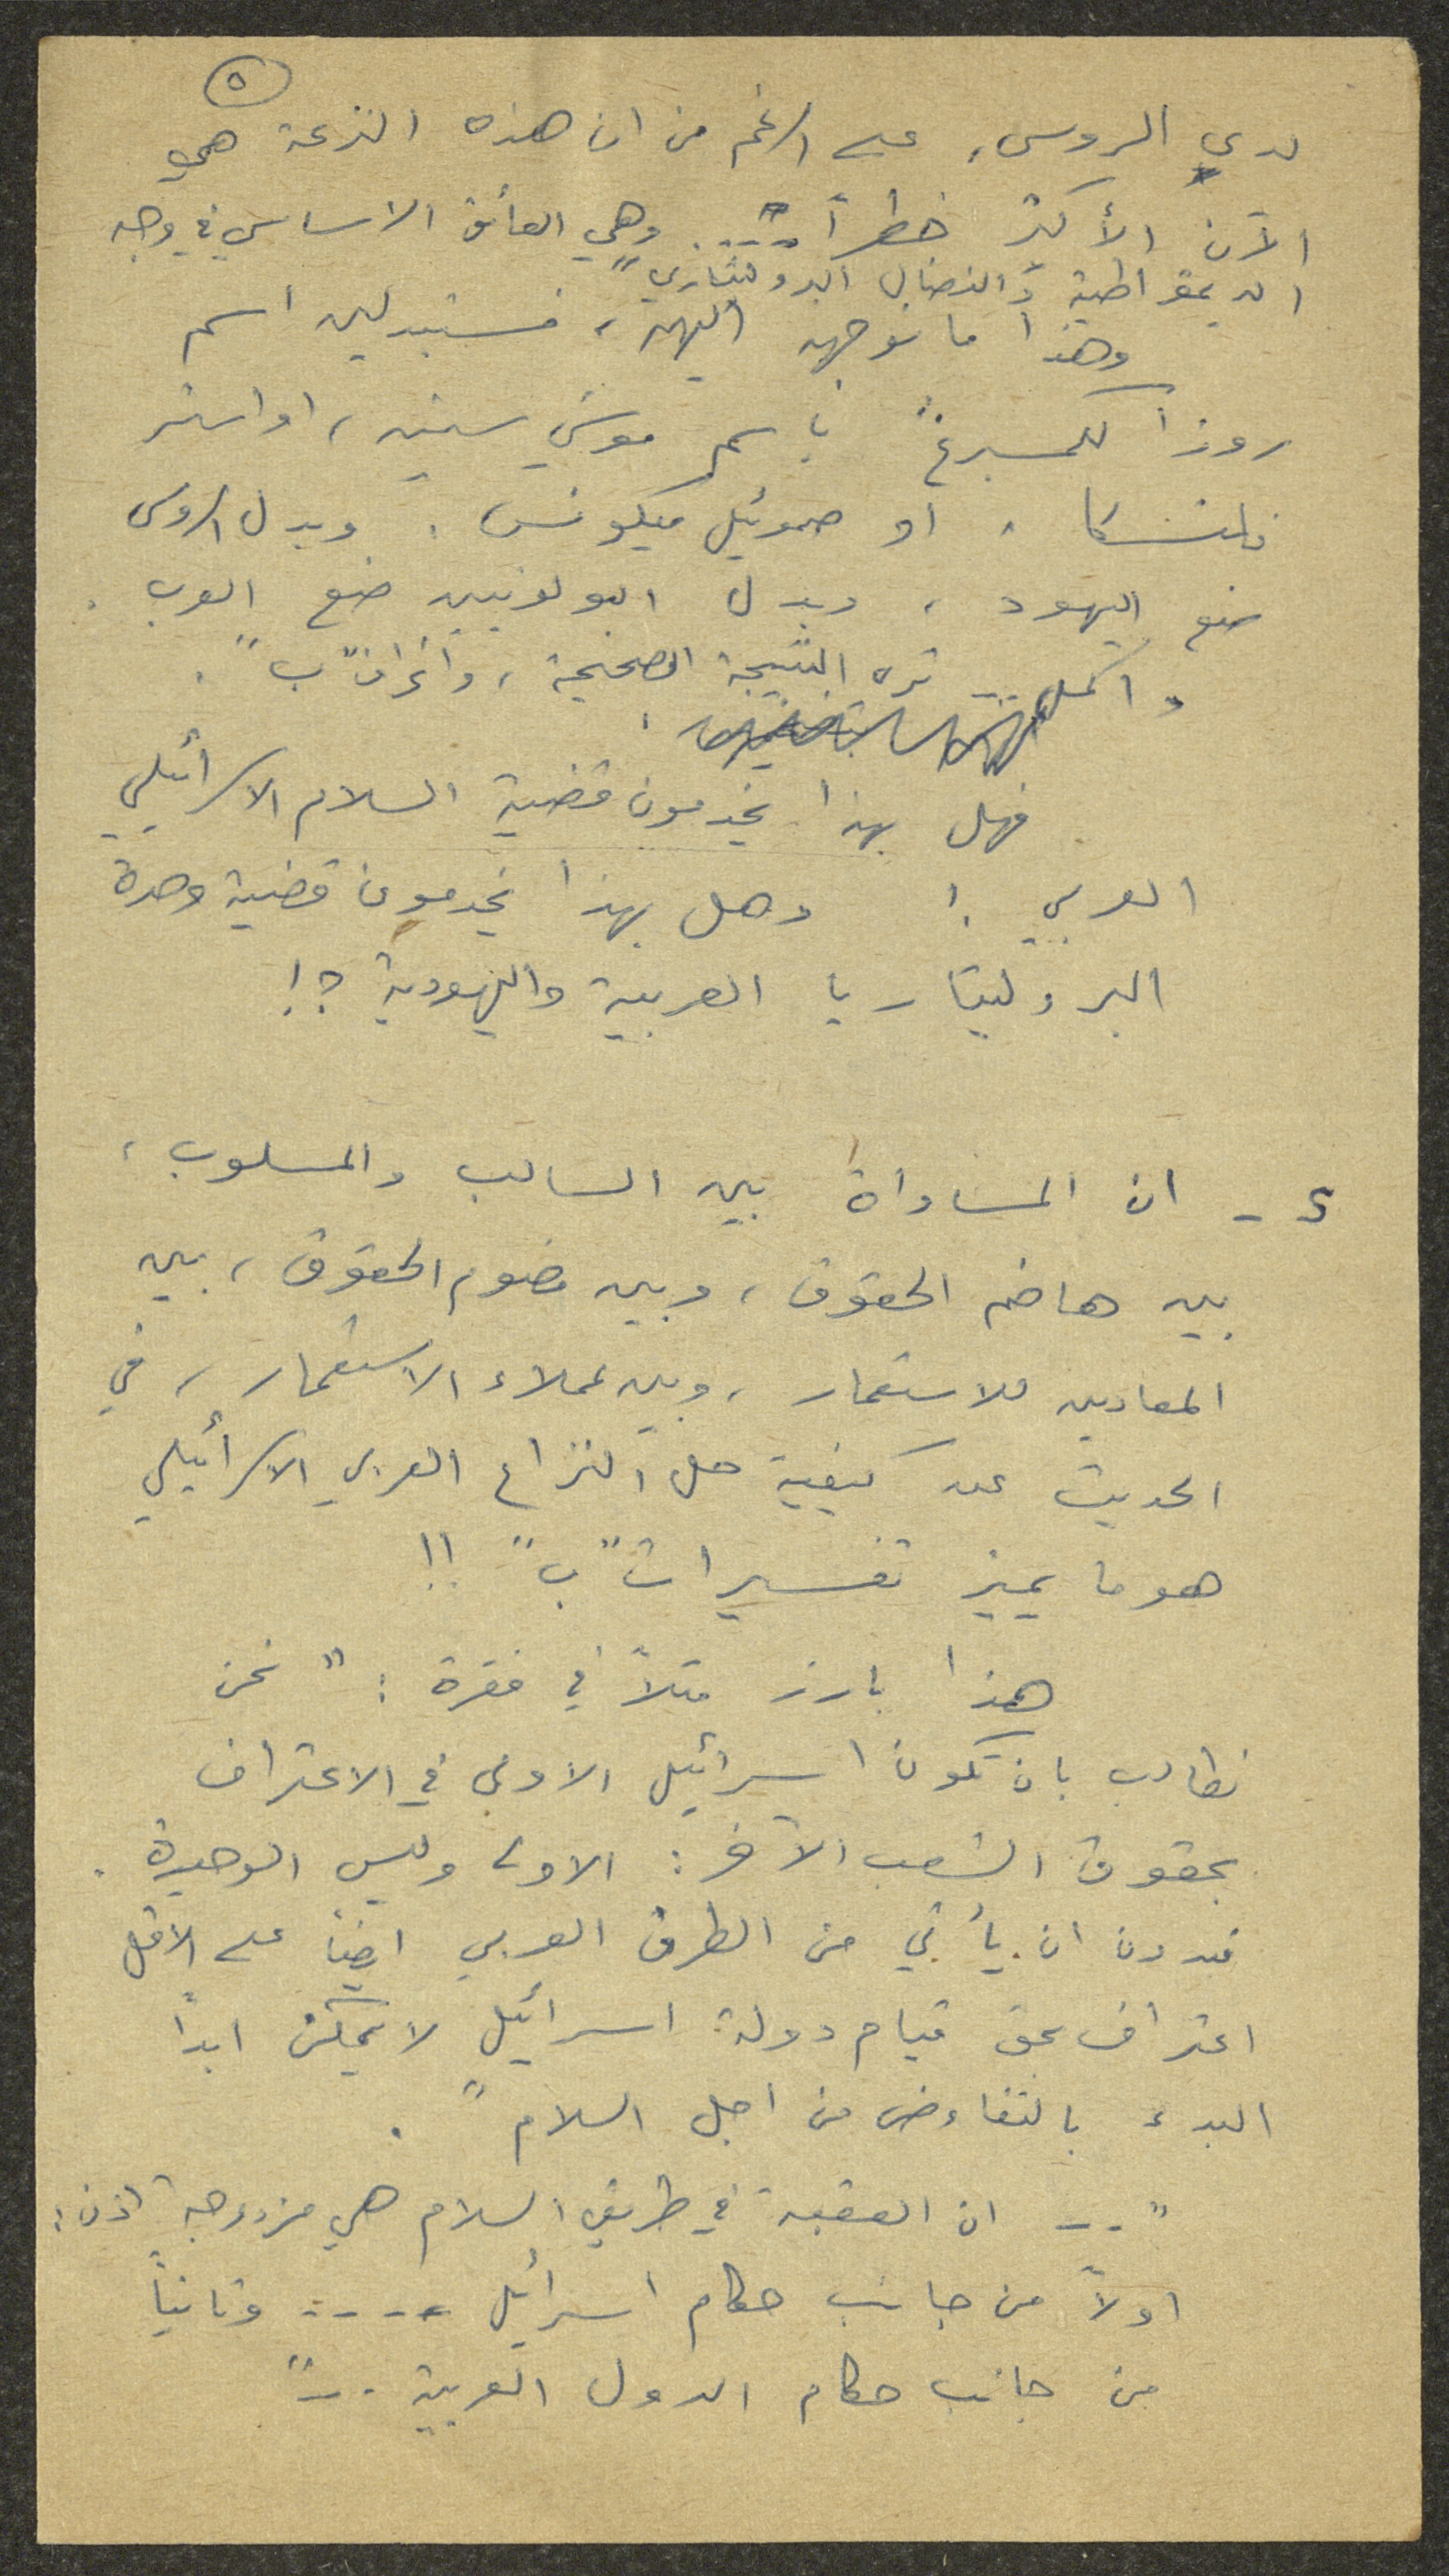 ٥
لدى الروس، على الرغم من ان هذه النزعة هي
الآن الأكثر خطراً .... وهي العائق الاساسي في وجه
الديمقراطية والنضال البروليتاري"
وهذا ما نوجهه اليهم، فستبدلين اسم
روزا لكسمبرغ" باسم موشي سنيه، او استر
فلنسكا، او صموئيل ميكونس. وبدل الروس
ضع اليهود، وبدل البولونيين ضع العرب.
واكمل... تره النتيجة الصحيحة، وانحراف "ب".
فهل بهذا يخدمون قضية السلام الاسرائيلي
العربي ! وهل بهذا يخدمون قضية وحدة
البروليتاريا العربية واليهودية ؟!
٤ - ان المساواة بين السالب والمسلوب،
بين هاضم الحقوق، وبين مهضوم الحقوق، بين
المعادين للاستعمار، وبين عملاء الاستعمار، في
الحديث عن كيفية حل النزاع العربي الاسرائيلي
هو ما يميز تفسيرات "ب" !!
هذا بارز مثلاً في فقرة : " نحن
نطالب بان تكون اسرائيل الاولى في الاعتراف
بحقوق الشعب الآخر : الاولى وليس الوحيدة.
فبدون ان يأتي من الطرف العربي ايضاً على الاقل
اعتراف بحق قيام دولة اسرائيل لا يمكن ابداً
البدء بالتفاوض من اجل السلام".
"... ان العقبة في طريق السلام هي مزدوجة اذن :
اولاً من جانب حكام اسرائيل ..... وثانياً
من جانب حكام الدول العربية ..."